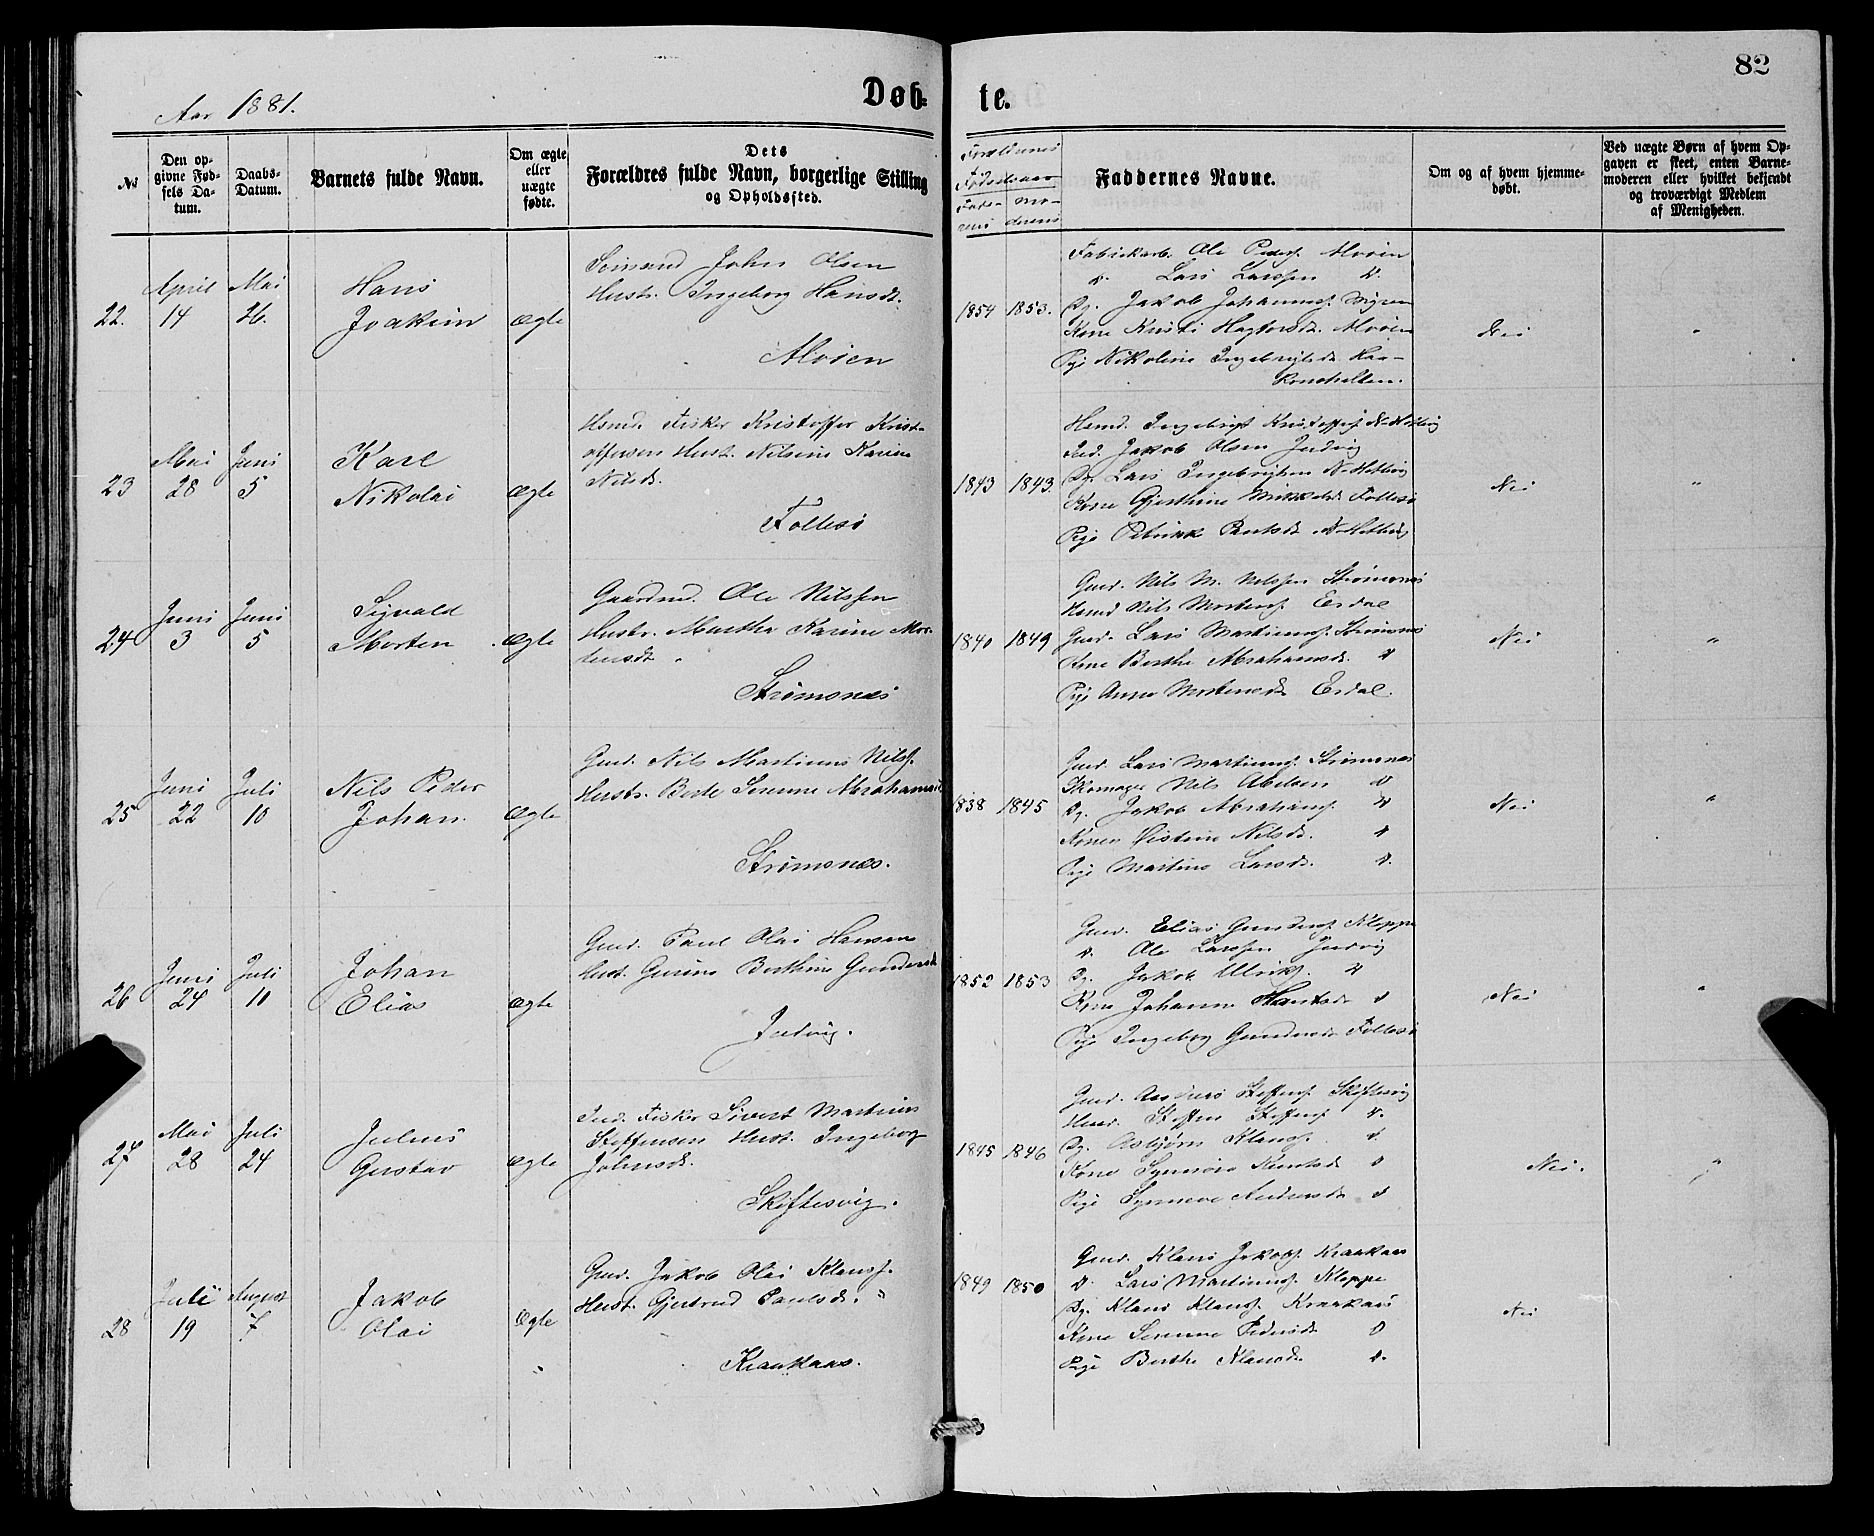 82
Aar 1881.
Døb-
te.
No
Den op-
givne Fød-
sels Da-
tum.
Daabs-
Datum.
Barnets fulde Navn.
Om ægte
eller
uægte
fødte.
Dets
Forældres fulde Navn, borgerlige Stilling
og Opholdssted.
Forældrenes
Fødselsaar
Fade- Mo-
rens derens
Faddernes Navne.
Om og af hvem hjemme-
døbt.
Ved uægte Børn af hvem Op-
gaven er skeet, enten Barne-
moderen eller hvilket bekjendt
og troværdigt Medlem
af Menigheden.
22.
April
14
Mai
26.
Hans
Joakim
Ægte
Sømand John Olsen
Hustr. Ingeborg Hansdt.
Alvøen
1854 1853.
Fabrikarb. Ole Peders. Alvøen
d. Lars Larssen d.
Pg. Jakob Johannes. Myren
Kone Kristi Alvøen
Pige Nikoline Ingebrigtsdt. Haa-
konshellen.
Nei
"
23
Mai
28
Juni
5
Karl
Nikolai
Ægte
Hsmd. Fisker Kristoffer Krist-
offersen Hust. Nilsine Karine
Nilsdt.
Follesø
1843 1843.
Hsmd. Ingebrigt Kristoffers.
Ind. Jakob Olsen Judvig
Pg. Lars Ingebrigtsen
Kone Gjerthine Mikkelsdt. Follesø
Pige
Nei
"
24
Juni
3
Juni
5
Sigvald
Morten
Ægte
Gaardmd. Ole Nilssen
Hustr. Martha Karine Mor-
tensdt.
Strømsnes
1840 1849
Gmd. Nils M. Nilssen Strømsnes
Hsmd Nils Mortens. Erdal
Gmd. Lars Martinus. Strømsnes
Kone Berthe Abrahamsdt. d
Pige Anna Mortensdt. Erdal.
Nei
"
25
Juni
22
Juli
10
Nils Peder
Johan
Ægte
Gmd. Nils Martinus Nilss.
Hustr. Berte Serenne Abrahamsd
Strømsnes.
1838 1845
Gmd. Lars Martinus. Strømsnes
Skomager Nils Abelsen d
Pg. Jakob Abrahams. d
Konen Øistine Nilsdt. d
Pige Martine Larsdt. d.
Nei
"
26
Juni
24
Juli
10
Johan
Elias
Ægte
Gmd. Paul Olai Hansen
Hust. Gurine Berthine Gundersdt
Judvig.
1852 1853
Gmd. Elias Gunders. Kleppe
d. Ole Larssen Judvig
Pg. Jakob Ulriks. d
Kone Johanne d
Pige Ingeborg Gundersdt Follesø
Nei
"
27
Mai
28
Juli
24
Julius
Gustav
Ægte
Ind. Fisker Sivert Martinus
Steffensen Hust. Ingeborg
Johnsdt.
Skiftesvig.
1845 1846
Gmd. Anders Steffens. Skiftesvig
Hsmd. Steffen Steffens. d.
Pg. Asbjørn Klaus. d.
Kone Synnøve Knutsdt d
Pige Synneve Andersdt d
Nei.
"
28
Juli
19
August
7
Jakob
Olai
Ægte
"
Gmd. Jakob Olai Klauss.
Hust. Gjertrud Paulsdt. "
Kraakaas.
1849 1850
Gmd. Klaus Jakobs. Kraakaas
d. Lars Martinus. Kleppe
Pg. Klaus Klauss. Kraakaas
Kone Serenne Pedersdt d
Pige Berthe Klausdt. d.
Nei